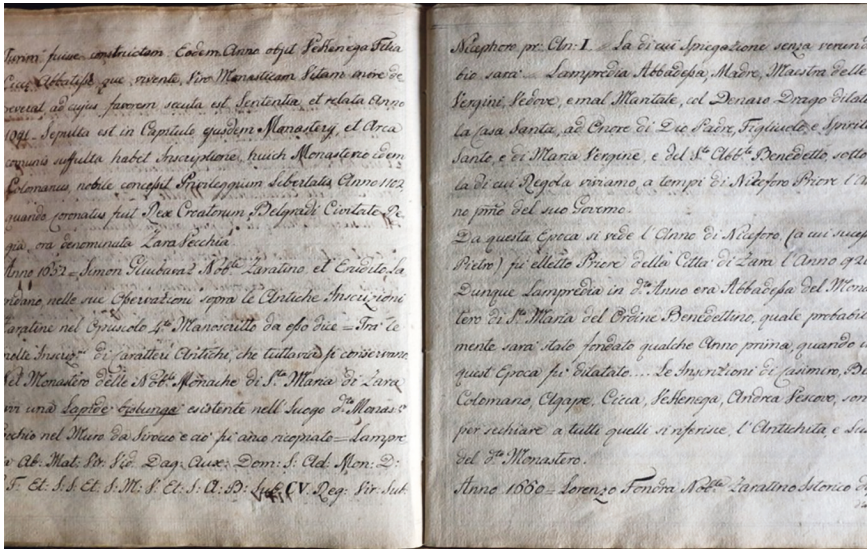 Turim fuisse constructam. Eodem Anno obijt Vekenega Filia
Cicæ Abbatissæ, quæ, vivente, Viro Monasticam Vitam more de
ad cujus favorem secuta est Sententia, et relata Anno
Sepulta est in Capitulo ejusdem Monasterij, et Arca
comunis suffulta habet Inscriptione, huich Monasterio idem
Colomanus, nobile concessit Privileggium Libertatis Anno 1102
quando coronatus fuit Rex Creatorum Belgradi Civitate Re-
gia, ora denominata Zara Vecchia
Anno 1652 = Simon Gliubavaz Nob:le Zaratino, et Erudito La
nelle sue Osservazioni sopra le Antiche Inscrizioni
Zaratine nel Opuscolo 4:to Manoscritto da esso dice = Trà le
molte Inscriz:ni di Caratteri Antichi, che tuttavia si conservano
Nel Monastero delle Nob:li Monache di S:ta Maria di Zara
vi una Lapide esistente nell' Luogo d:to Monas:ro
Vecchio nel Muro da Sirocco e ciò fù anco ricopiato = Lampre
Ab: Mat: Vir: Vid: Dag: Aux: Dom: S: Ad: Mon: D:
F: Et: S: S: Et: S: M: V: Et: S: A: B: Sub: CV. Reg: Vir: Sub
Nicephoro pr: An: I. = La di cui Spiegazione senza verun d
bio sarà Lampredia Abbadessa, Madre, Maestra delle
Vergini, Vedove, e mal Maritate, col Denaro Drago dilatò
la Casa Santa, ad Onore di Dio Padre, Figliuolo, e Spirito
Santo, e di Maria Vergine, e del S:to Abb:te Benedetto, sotto
la di cui Regola viviamo, a tempi di Niceforo Priore l'A
no p:mo del suo Governo.
Da questa Epoca si vede l'Anno di Niceforo, (a cui succes
Pietro) fù elletto Priore della Città di Zara l'Anno
Dunque Lampredia in d:to Anno era Abbadessa del Mona
tero di S:ta Maria del Ordine Benedettino, quale probabil
mente sarà stato fondato qualche Anno prima, quando in
quest'Epoca fù dilatato.... Le Inscrizioni di Casimiro, Be
Colomano, Agape, Ciccia, Vekenega, Andrea Vescovo, son
per sechiare a tutti quelli si riferisce, l'Antichità, e
del d:to Monastero.
Anno 1660 = Lorenzo Fondra Nob:le Zaratino Istorico